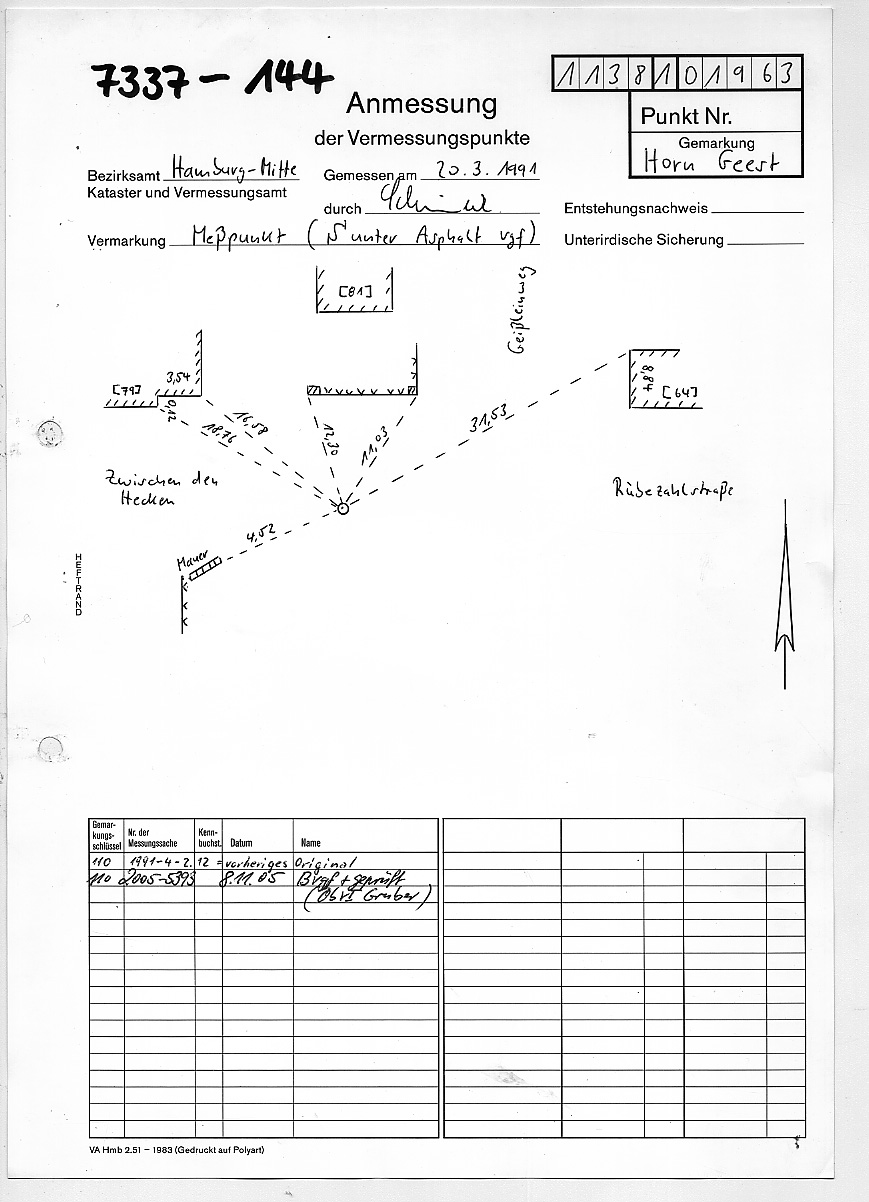 7337-144
1138101963
Anmessung
der Vermessungspunkte
Punkt Nr.
Gemarkung
Horn Geest
Bezirksamt Hamburg-Mitte
Kataster und Vermessungsamt
Gemessen am 20.3.1991
durch
Entstehungsnachweis
Vermarkung Meßpunkt ( unter Asphalt vgf)
Unterirdische Sicherung
[81]
Geißleinweg
[79]
3,54
0,12
8,84
[64]
16,58
18,76
12,30
11,03
31,53
Zwischen den
Hecken
Rübezahlstraße
4,52
Mauer
HEFTRAND
Gemar-
kungs-
schlüssel
Nr. der
Messungssache
Kenn-
buchst.
Datum
Name
110 1991-4-2.12 = vorheriges Original
110 2005-5393 8.11.05 Bvgf + geprüft
( Gruber)
VA Hmb 2.51 – 1983 (Gedruckt auf Polyart)